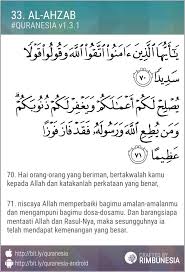 33. AL-AHZAB
#QURANESIA v1.3.1
يَٰٓأَيُّهَا ٱلَّذِينَ ءَامَنُوا۟ ٱتَّقُوا۟ ٱللَّهَ وَقُولُوا۟ قَوْلًا
سَدِيدًا ٧٠
يُصْلِحْ لَكُمْ أَعْمَٰلَكُمْ وَيَغْفِرْ لَكُمْ ذُنُوبَكُمْ ۗ
وَمَن يُطِعِ ٱللَّهَ وَرَسُولَهُۥ فَقَدْ فَازَ فَوْزًا
عَظِيمًا ٧١
70. Hai orang-orang yang beriman, bertakwalah kamu
kepada Allah dan katakanlah perkataan yang benar,
71. niscaya Allah memperbaiki bagimu amalan-amalanmu
dan mengampuni bagimu dosa-dosamu. Dan barangsiapa
mentaati Allah dan Rasul-Nya, maka sesungguhnya ia
telah mendapat kemenangan yang besar.
http://bit.ly/quranesia
http://bit.ly/quranesia-android
CRAFTED BY
RIMBUNESIA